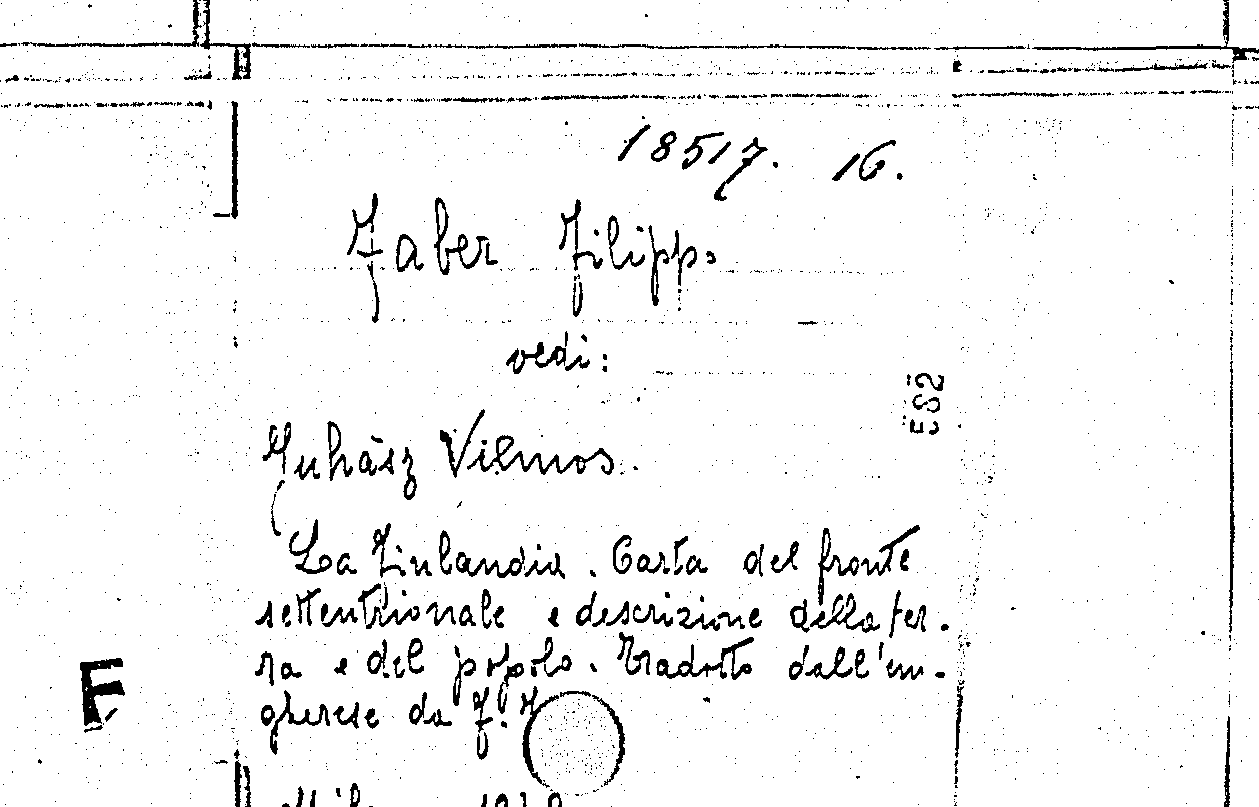 18517. 16.
Faber Filippo
vedi:
ES2
Juhász Vilmos.
La Finlandia. Carta del fronte
settentrionale e descrizione della ter-
ra e del popolo. Tradotto dall'un-
gherese da F. F
F